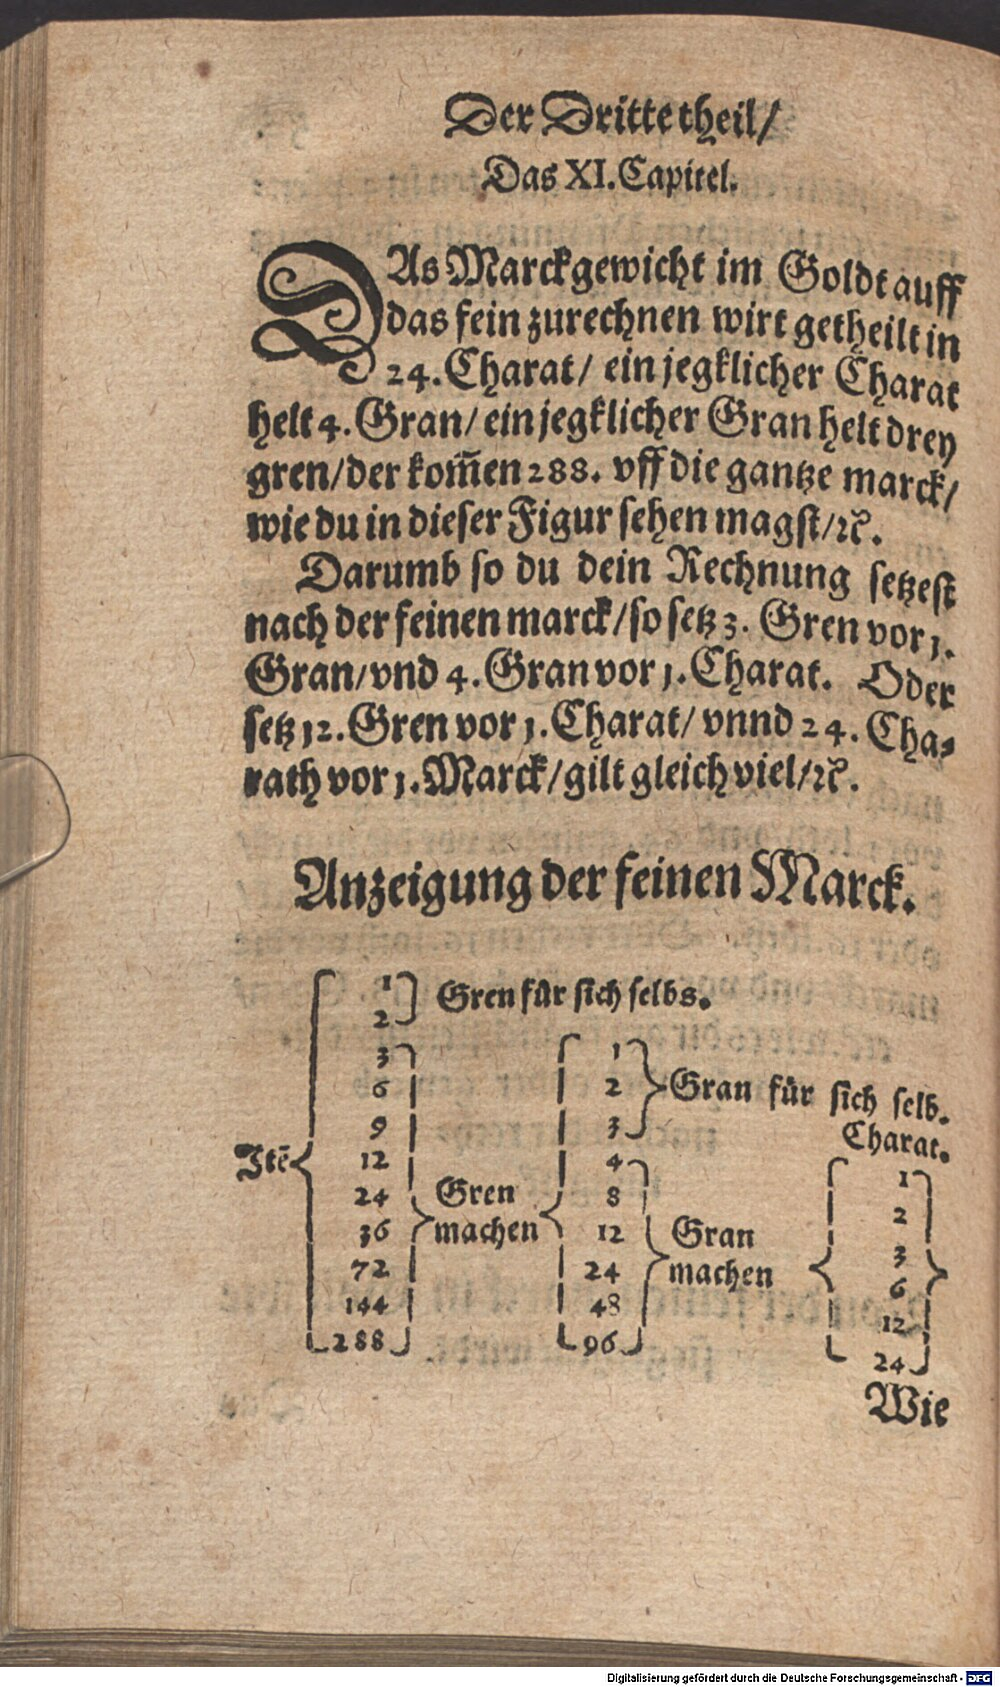 Der Dritte theil/
Das XI. Capitel.
DAs Marckgewicht im Goldt auff
das fein zurechnen wirt getheilt in
24. Charat/ ein jegklicher Charat
helt 4. Gran/ ein jegklicher Gran helt drey
gren/ der kom̃en 288. vff die gantze marck/
wie du in dieser Figur sehen magst/ ꝛc̃.
Darumb so du dein Rechnung setzest
nach der feinen marck/ so setz 3. Gren vor 1.
Gran/ vnd 4. Gran vor 1. Charat. Oder
setz 12. Gren vor 1. Charat/ vnnd 24. Cha⸗
rath vor 1. Marck/ gilt gleich viel/ ꝛc̃.
Anzeigung der feinen Marck.
Itẽ
1
2
Gren fůr sich selbs.
3
6
9
12
24
36
72
144
288
Gren
machen
1
2
3
Gran fůr sich selb.
4
8
12
24
48
96
Gran
machen
Charat.
1
2
3
6
12
24
Wie
Digitalisierung gefördert durch die Deutsche Forschungsgemeinschaft - DFG